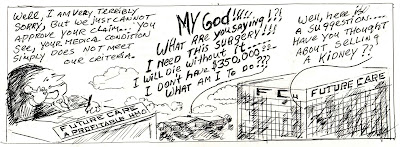 Well, I am very terribly
sorry, but we just cannot
approve your claim... You
see, your medical condition
simply does not meet
our criteria.
FUTURE CARE
A PROFITABLE HMO
My God!!!..
What are you saying!?!
I need this surgery!!!
I will die without it...
I don't have $350,000
What am I to do?!?
FC
Well, here is
a suggestion....
Have you thought
about selling
a kidney??
FUTURE CARE